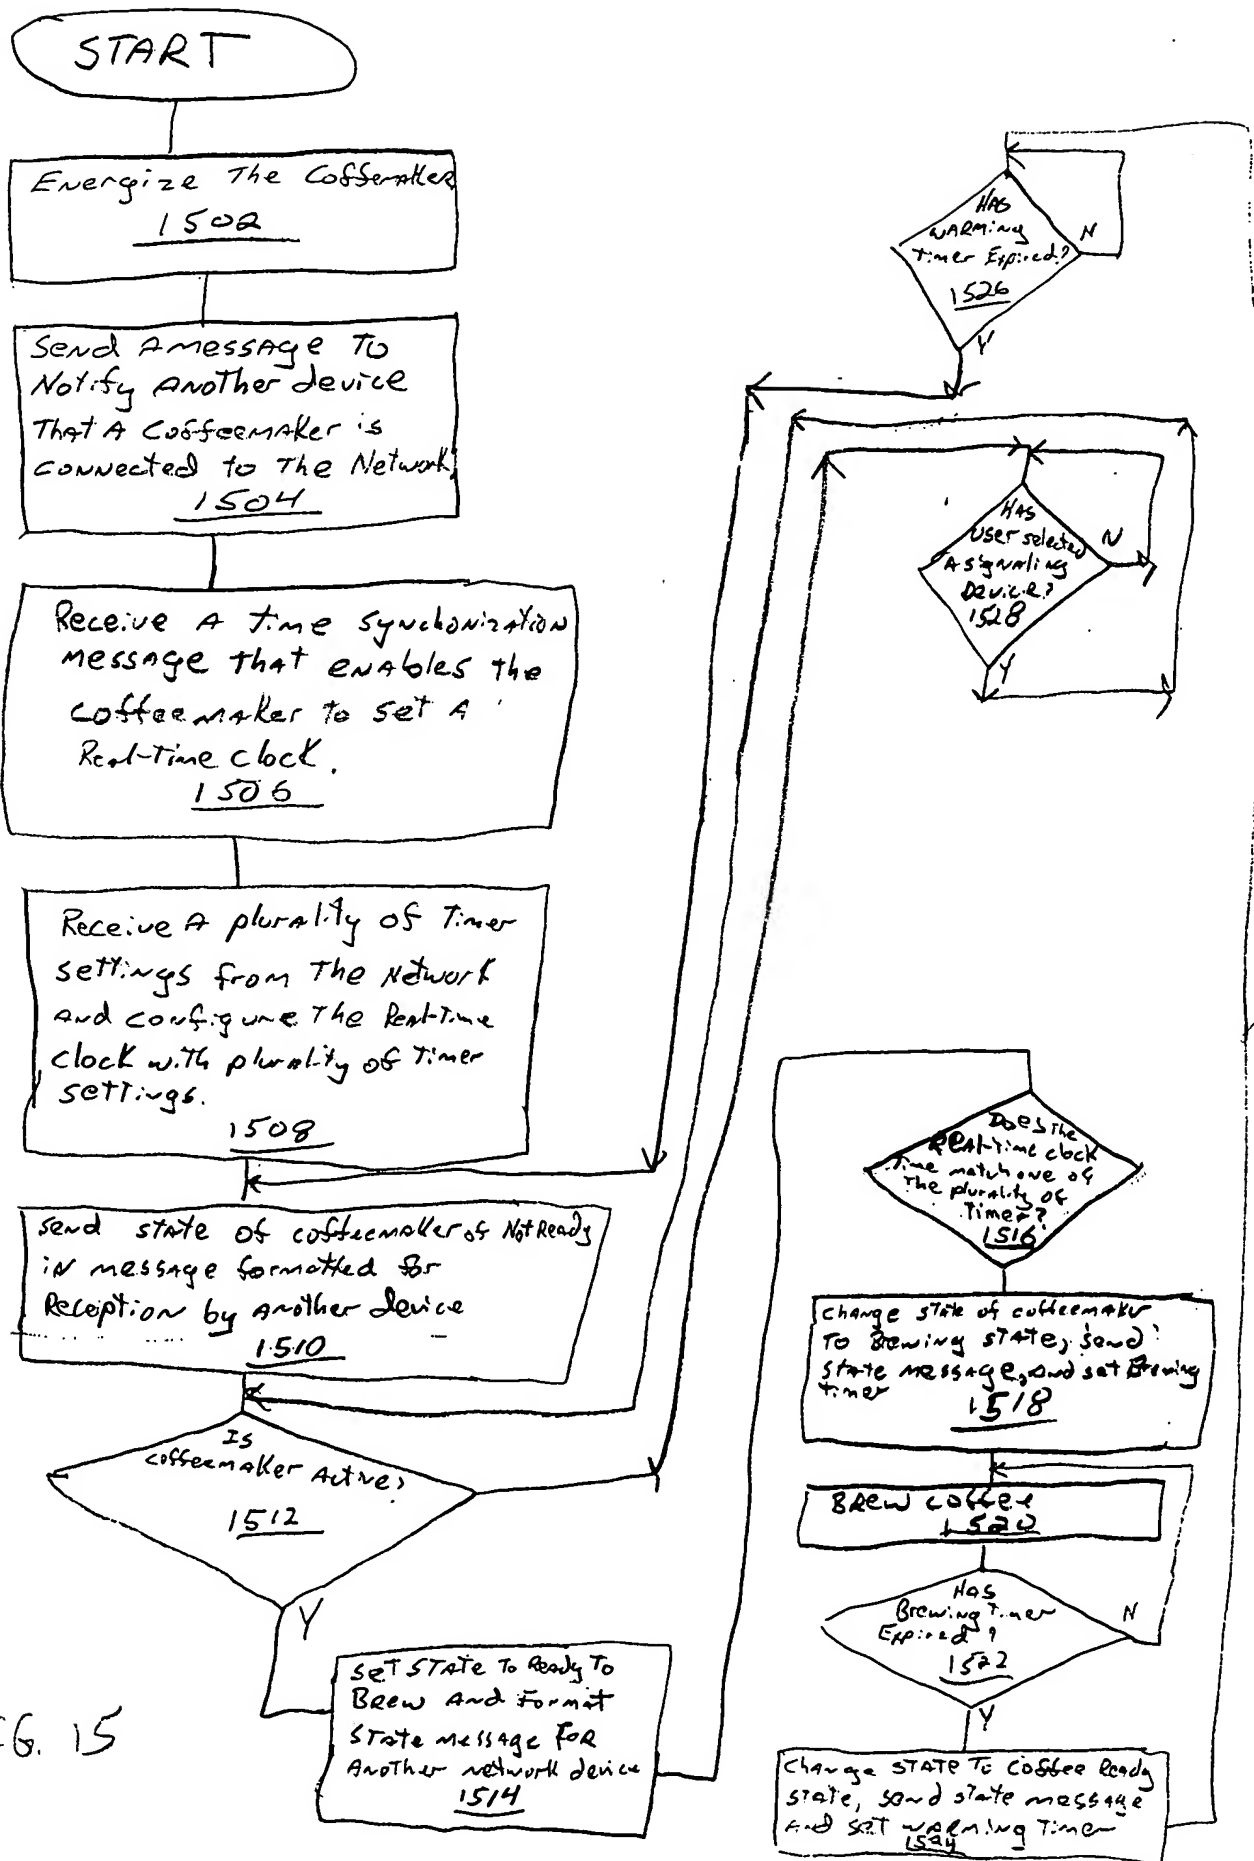 START
Energize The Coffemaker
1502
Send A message To
Notify Another device
That A Coffeemaker is
connected to The Network
1504
Receive A time synchonization
message that enables the
coffeemaker to set A
Real-Time clock.
1506
Receive A plurality of Timer
settings from The Network
And configure The Real-Time
clock with plurality of Timer
settings.
1508
send state of coffeemaker of Not Ready
in message formatted for
Reception by another device
1510
Is
coffeemaker Active?
1512
Y
Set State To Ready To
Brew And Format
State message For
Another network device
1514
G. 15
Has
warming
timer Expired?
1526
N
Y
Has
User selected
A signaling
Device?
1528
N
Y
Does The
Real-Time clock
Time match one of
The plurality of
Timer?
1516
change state of coffeemaker
To Brewing State, send
State message, and set Brewing
timer
1518
Brew coffee
1520
Has
Brewing Timer
Expired?
1522
N
Y
Change State To Coffee Ready
State, send state message
And set warming Timer
1524